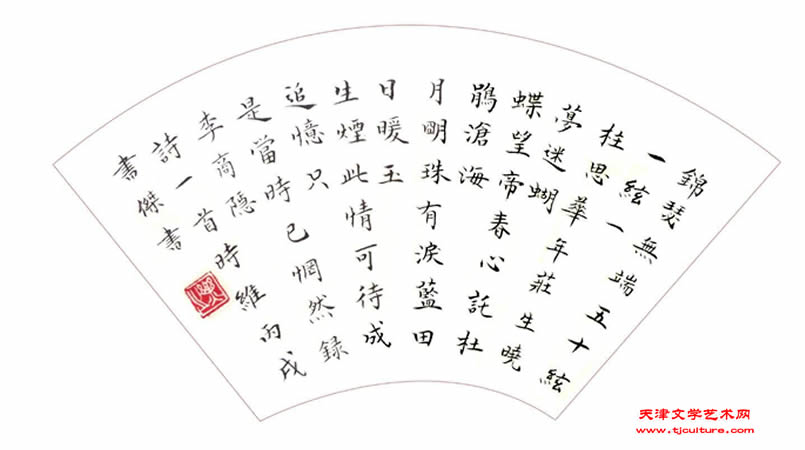 錦瑟無端五十絃
一絃一
柱思華年莊生曉
夢迷蝴
蝶望帝春心託杜
鵑滄海
月明珠有淚藍田
日暖玉
生煙此情可待成
追憶只
是當時已惘然録
李商隱
詩一首時維丙戌
書傑書
天津文学艺术网
www.tjculture.com